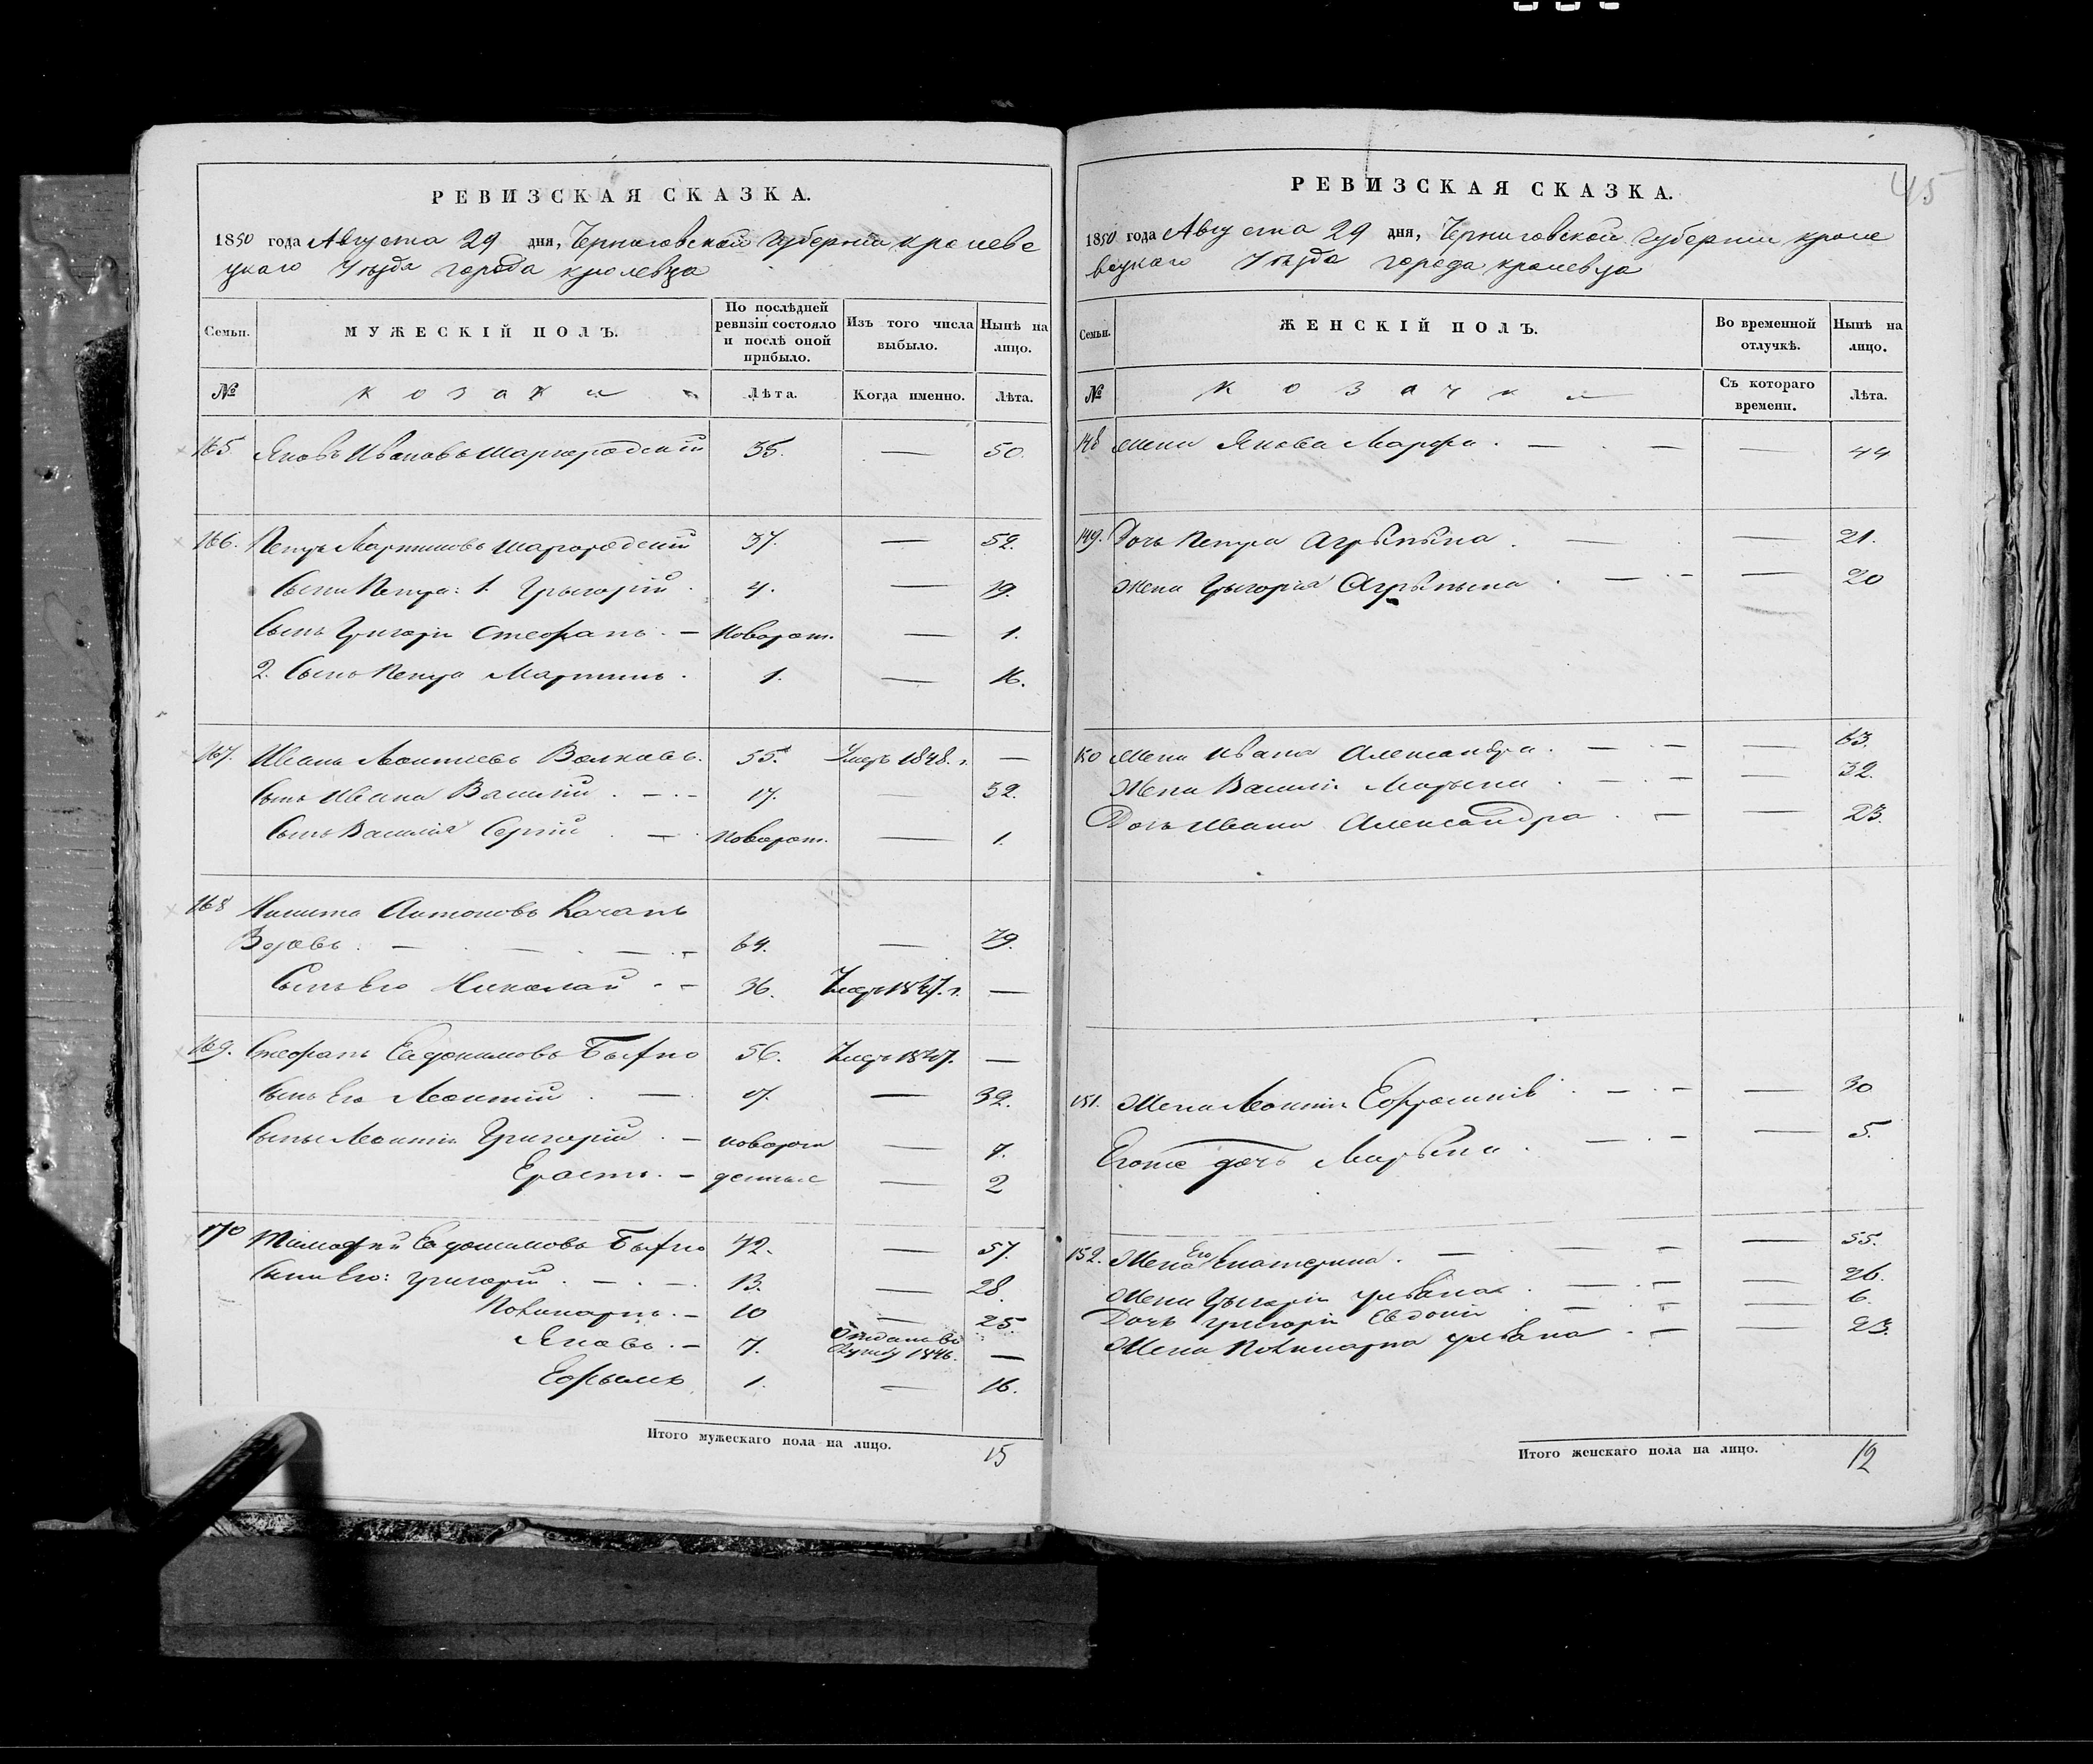 РЕВИЗСКАЯ СКАЗКА.
1850 года Августа 29 дня, Черниговской Губерніи кролеве
цкаго Уѣзда города кролевца
Семьи.
МУЖЕСКІЙ ПОЛЪ.
По послѣдней ревизіи состояло и послѣ оной прибыло.
Изъ того числа выбыло.
Нынѣ на лицо.
№
козаки
Лѣта.
Когда именно.
Лѣта.
165 Яковъ Ивановъ Шаргородскій 35. — 50.
166. Петръ Мартиновъ Шаргородскій 37. — 52.
Сыни Петра: 1. Грыгорій 4. — 19.
Сынъ Григорія Стефанъ. — Новорож. — 1.
2. Сынъ Петра Мартинъ. 1. — 16.
167. Иванъ Леонтіевъ Волковъ. 55. Умеръ 1848. г. —
Сынъ Ивана Василій 17. — 32.
Сынъ Василія Сергій Новорож. — 1.
168 Никита Антоновъ Качанъ
Вдовъ. 64. — 79.
Сынъ Его Николай 36. Умеръ 1847. г. —
169. Стефанъ Евдокимовъ 56. Умеръ 1847. —
Сынъ Его Леонтій 17. — 32.
Сыны Леонтія Григорій — новорож — 7.
Ерастъ. — денные — 2
170 Тимофій Евдокимовъ 42. — 57.
Сыни Его: Григорій 13. — 28.
Поликарпъ. — 10 — 25.
Яковъ. — 7. Отданъ въ
Службу 1846. —
Ефымъ 1. — 16.
Итого мужескаго пола на лицо. 15
РЕВИЗСКАЯ СКАЗКА.
45
1850 года Августа 29 дня, Черниговской Губерніи кроле
вецкаго Уѣзда города кролевца
Семьи.
ЖЕНСКІЙ ПОЛЪ.
Во временной отлучкѣ.
Нынѣ на лицо.
№
козачки
Съ котораго времени.
Лѣта.
148 жена Якова Марфа. — 44
149. Дочь Петра Агрыпына. — 21.
Жена Грыгорія Агрыпына. — 20
150 Жена Ивана Александра. — 63.
Жена Василія Марына. — 32.
Дочь Ивана Александра. — 23.
151. Жена Леонтія Ефросинія. — 30
Егоже дочь Марына. — 5.
152. Жена Его Екатерина. — 55.
Жена Грыгорія Уліана. — 26.
Дочь Григорія Евдокія — 6.
Жена Поликарпа Уліана. — 23.
Итого женскаго пола на лицо. 12